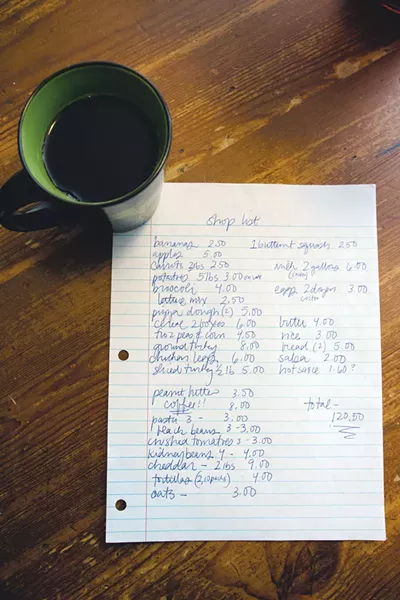 Shop list
bananas 2.50 1 butternut squash 2.50
apples 5.00
carrots 2 lbs 2.50 milk 2 gallons 6.00
potatoes 5 lbs 3.00
broccoli 4.00 eggs 2 dozen 3.00
lettuce mix 2.50
pizza dough (2) 5.00
cereal 2 boxes 6.00 butter 4.00
froz peas & corn 4.00 rice 3.00
ground turkey 8.00 bread (2) 5.00
chicken legs 6.00 salsa 2.00
sliced turkey 1/2 lb 5.00 hot sauce 1.60?
peanut butter 3.50
coffee!! 8.00 total -
pasta 3 - 3.00 120.50
black beans 3 - 3.00
crushed tomatoes 3 - 3.00
kidney beans 4 - 4.00
cheddar - 2 lbs 9.00
tortillas - 4.00
oats - 3.00